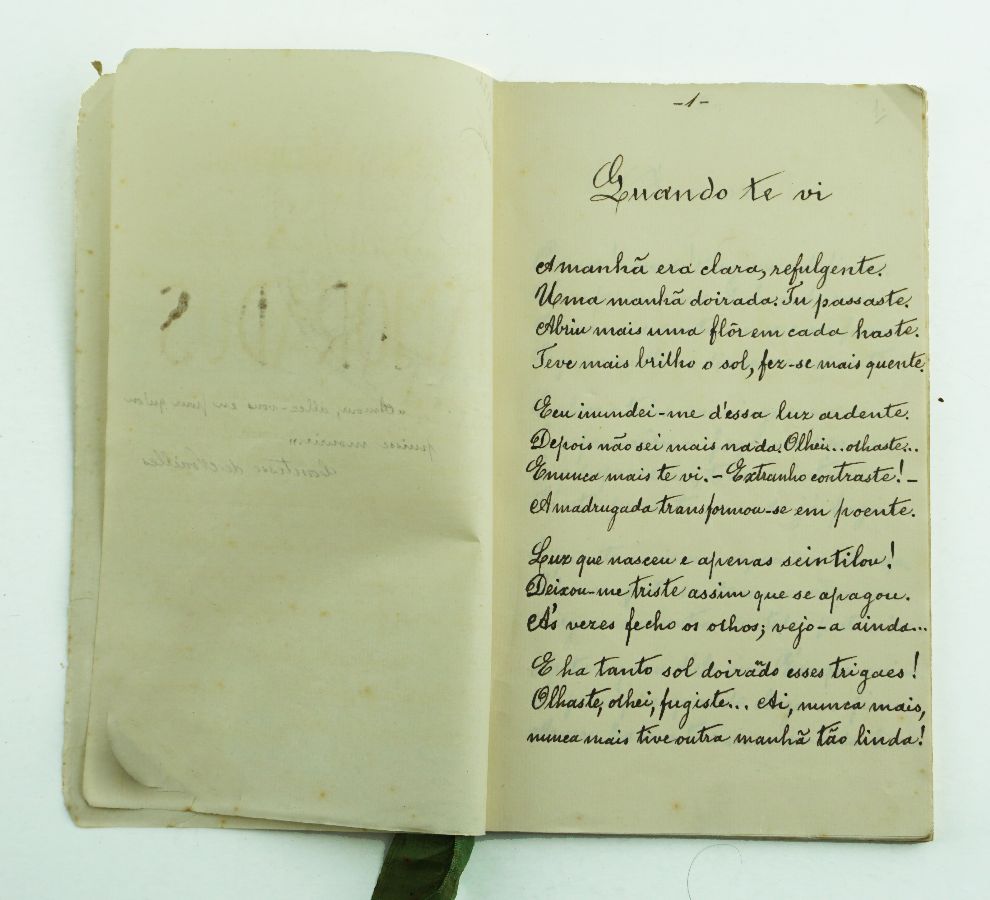 -1-
Quando te vi
A manhã era clara, refulgente.
Uma manhã doirada. Tu passaste.
Abriu mais uma flôr em cada haste.
Teve mais brilho o sol, fez-se mais quente.
E eu inundei-me d'essa luz ardente.
Depois não sei mais nada. Olhei... olhaste...
E nunca mais te vi. - Extranho contraste! -
A madrugada transformou-se em poente.
Luz que nasceu e apenas scintilou!
Deixou-me triste assim que se apagou.
A's vezes fecho os olhos; vejo-a ainda...
E ha tanto sol doirando esses trigaes!
Olhaste, olhei, fugiste... Ai, nunca mais,
nunca mais tive outra manhã tão linda!